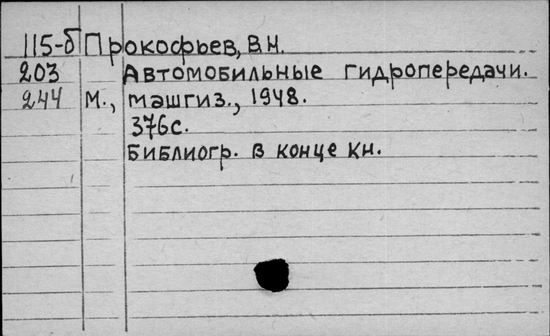 115-б Прокофьев, В.Н.
203 Автомобильные гидропередачи.
244 М., Машгиз., 1948.
376с.
Библиогр. в конце кн.